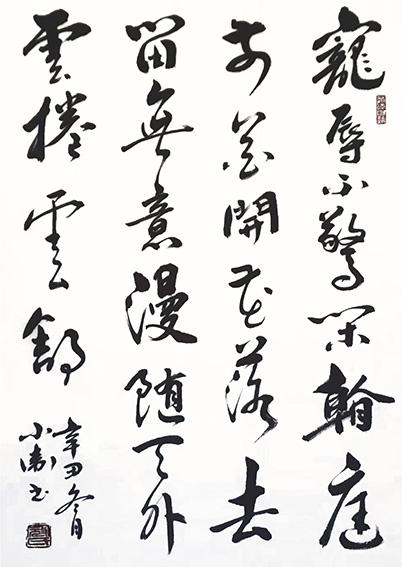 寵辱不驚閑看庭
前花開花落去
留無意漫随天外
雲捲雲舒
辛丑冬月